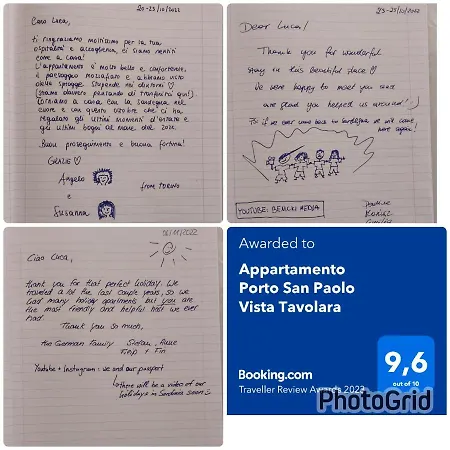 20-23/10/2022
Caro Luca,
ti ringraziamo moltissimo per la tua
ospitalità e accoglienza, ci siamo sentiti
come a casa!
L'appartamento è molto bello e confortevole,
il paesaggio mozzafiato e abbiamo visto
delle spiagge stupende nei dintorni ♡
(stiamo davvero pensando di trasferirci qui!)
Torniamo a casa con la Sardegna nel
cuore e con questo ottobre che ci ha
regalato gli ultimi momenti d'estate e
gli ultimi bagni al mare del 2022.
Buon proseguimento e buona fortuna!
GRAZIE ♡
Angelo
from TORINO
e
Susanna
23-25/10/2022
Dear Luca!
Thank you for wonderful
stay in this beautiful place ♡
We were happy to meet you and
are glad you helped us around :)
PS if we ever come back to Sardinia we will come
here again!
YOUTUBE: BEMCKI MEDIA
Pauline
06/11/2022
Ciao Luca,
thank you for that perfect holiday. We
traveled a lot the last couple years, so we
had many holiday apartments but you are
the most friendly and helpful host we ever
had.
Thank you so much,
the German Family Stefan, Anne
Piep + Fin
Youtube + Instagram: we and our passport
there will be a video of our
holidays in Sardinia soon :)
Awarded to
Appartamento
Porto San Paolo
Vista Tavolara
Booking.com
Traveller Review Awards 2023
9,6
out of 10
PhotoGrid